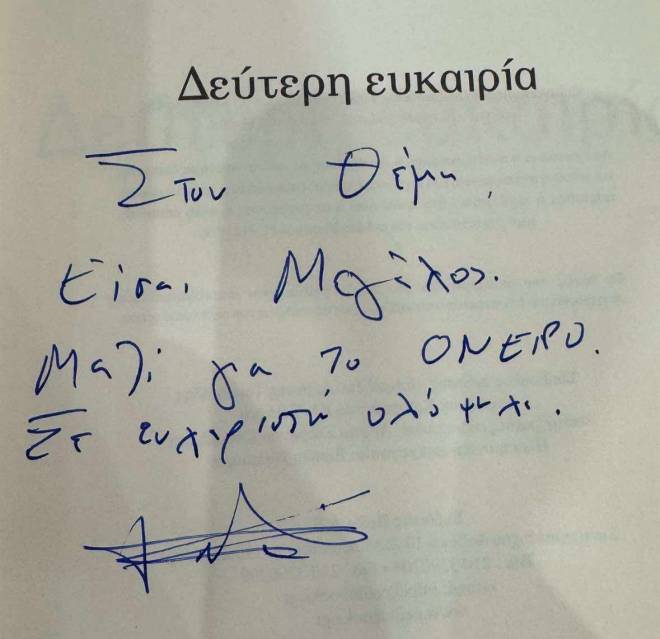 Δεύτερη ευκαιρία
Στον Θέμη,
Είσαι Μεγάλος.
Μαζί για το ΟΝΕΙΡΟ.
Σε ευχαριστώ ολόψυχα.